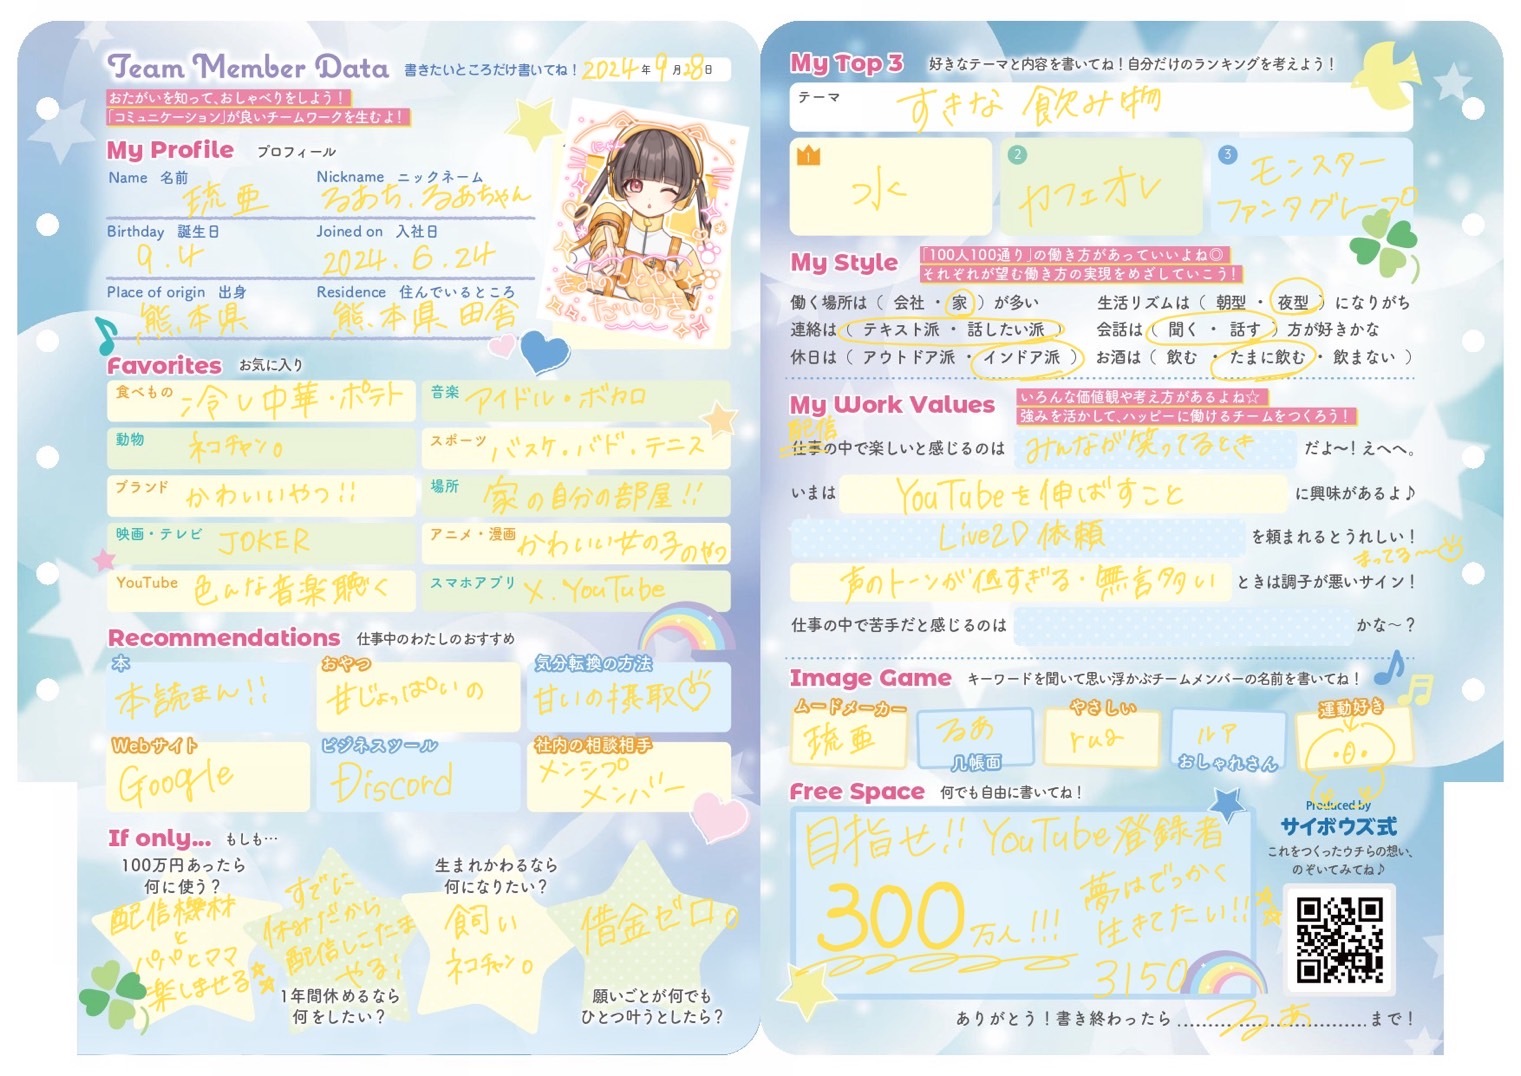 Team Member Data 書きたいところだけ書いてね！ 2024年 9月28日
おたがいを知って、おしゃべりをしよう！
「コミュニケーション」が良いチームワークを生むよ！
My Profile プロフィール
Name 名前 琉亜
Nickname ニックネーム るあち、るあちゃん
Birthday 誕生日 9.4
Joined on 入社日 2024.6.24
Place of origin 出身 熊本県
Residence 住んでいるところ 熊本県 田舎
だいすき
Favorites お気に入り
食べもの 冷し中華・ポテト
音楽 アイドル・ボカロ
動物 ネコチャン。
スポーツ バスケ・バド・テニス
ブランド かわいいやつ!!
場所 家の自分の部屋!!
映画・テレビ JOKER
アニメ・漫画 かわいい女の子のやつ
YouTube 色んな音楽聴く
スマホアプリ X、YouTube
Recommendations 仕事中のわたしのおすすめ
本 本読まん!!
おやつ 甘じょっぱいの
気分転換の方法 甘いの摂取
Webサイト Google
ビジネスツール Discord
社内の相談相手 メンシプ
メンバー
If only... もしも…
100万円あったら
何に使う？
配信機材
と
パパとママ
楽しませる
すでに
休みだから
配信しこたま
やる!
1年間休めるなら
何をしたい？
生まれかわるなら
何になりたい？
飼い
ネコチャン。
借金ゼロ。
願いごとが何でも
ひとつ叶うとしたら？
My Top 3 好きなテーマと内容を書いてね！自分だけのランキングを考えよう！
テーマ すきな飲み物
1 水
2 カフェオレ
3 モンスター
ファンタグレープ
My Style 「100人100通り」の働き方があっていいよね◎
それぞれが望む働き方の実現をめざしていこう！
働く場所は（ 会社 ・ 家 ）が多い
生活リズムは（ 朝型 ・ 夜型 ）になりがち
連絡は（ テキスト派 ・ 話したい派 ）
会話は（ 聞く ・ 話す ）方が好きかな
休日は（ アウトドア派 ・ インドア派 ）
お酒は（ 飲む ・ たまに飲む ・ 飲まない ）
My Work Values いろんな価値観や考え方があるよね☆
強みを活かして、ハッピーに働けるチームをつくろう！
配信
仕事の中で楽しいと感じるのは みんなが笑ってるとき だよ〜！えへへ。
いまは YouTubeを伸ばすこと に興味があるよ♪
Live2D依頼 を頼まれるとうれしい！
まってる〜
声のトーンが低すぎる・無言多い ときは調子が悪いサイン！
仕事の中で苦手だと感じるのは かな〜？
Image Game キーワードを聞いて思い浮かぶチームメンバーの名前を書いてね！
ムードメーカー 琉亜
るあ 几帳面
やさしい rua
ルア おしゃれさん
運動好き
Free Space 何でも自由に書いてね！
目指せ!! YouTube登録者
300万人!!!
夢はでっかく
生きてたい!!
3150
Produced by
サイボウズ式
これをつくったウチらの想い、
のぞいてみてね♪
ありがとう！書き終わったら るあ まで！